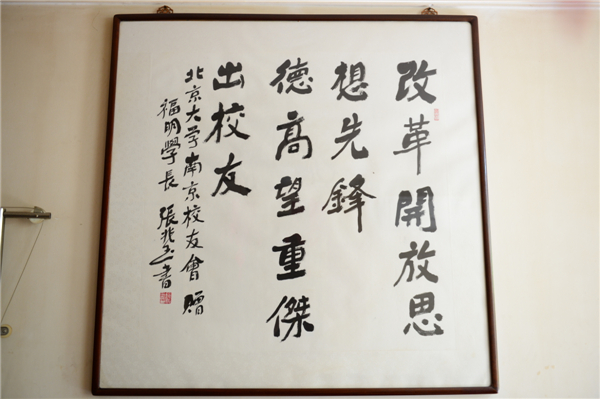 改革開放思
想先鋒
德高望重傑
出校友
北京大学南京校友會 贈
福明學長 張兆玉書